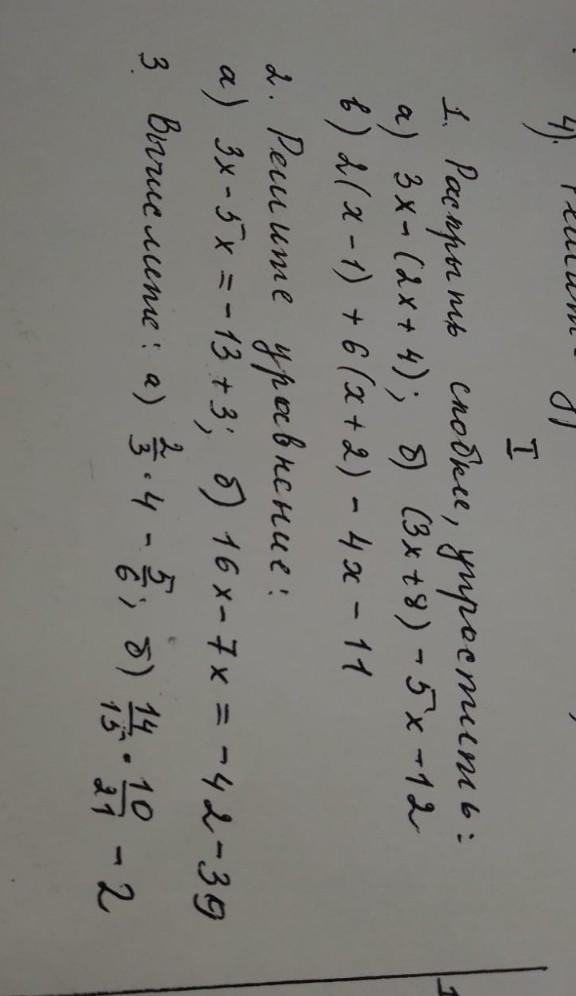 4).
I
1. Раскрыть скобки, упростить:
а) 3x-(2x+4); б) (3x+8)-5x-12
в) 2(x-1)+6(x+2)-4x-11
2. Решите уравнение:
а) 3x-5x=-13+3; б) 16x-7x=-42-39
3. Вычислите: а) 2/3·4-5/6; б) 14/15·10/21-2